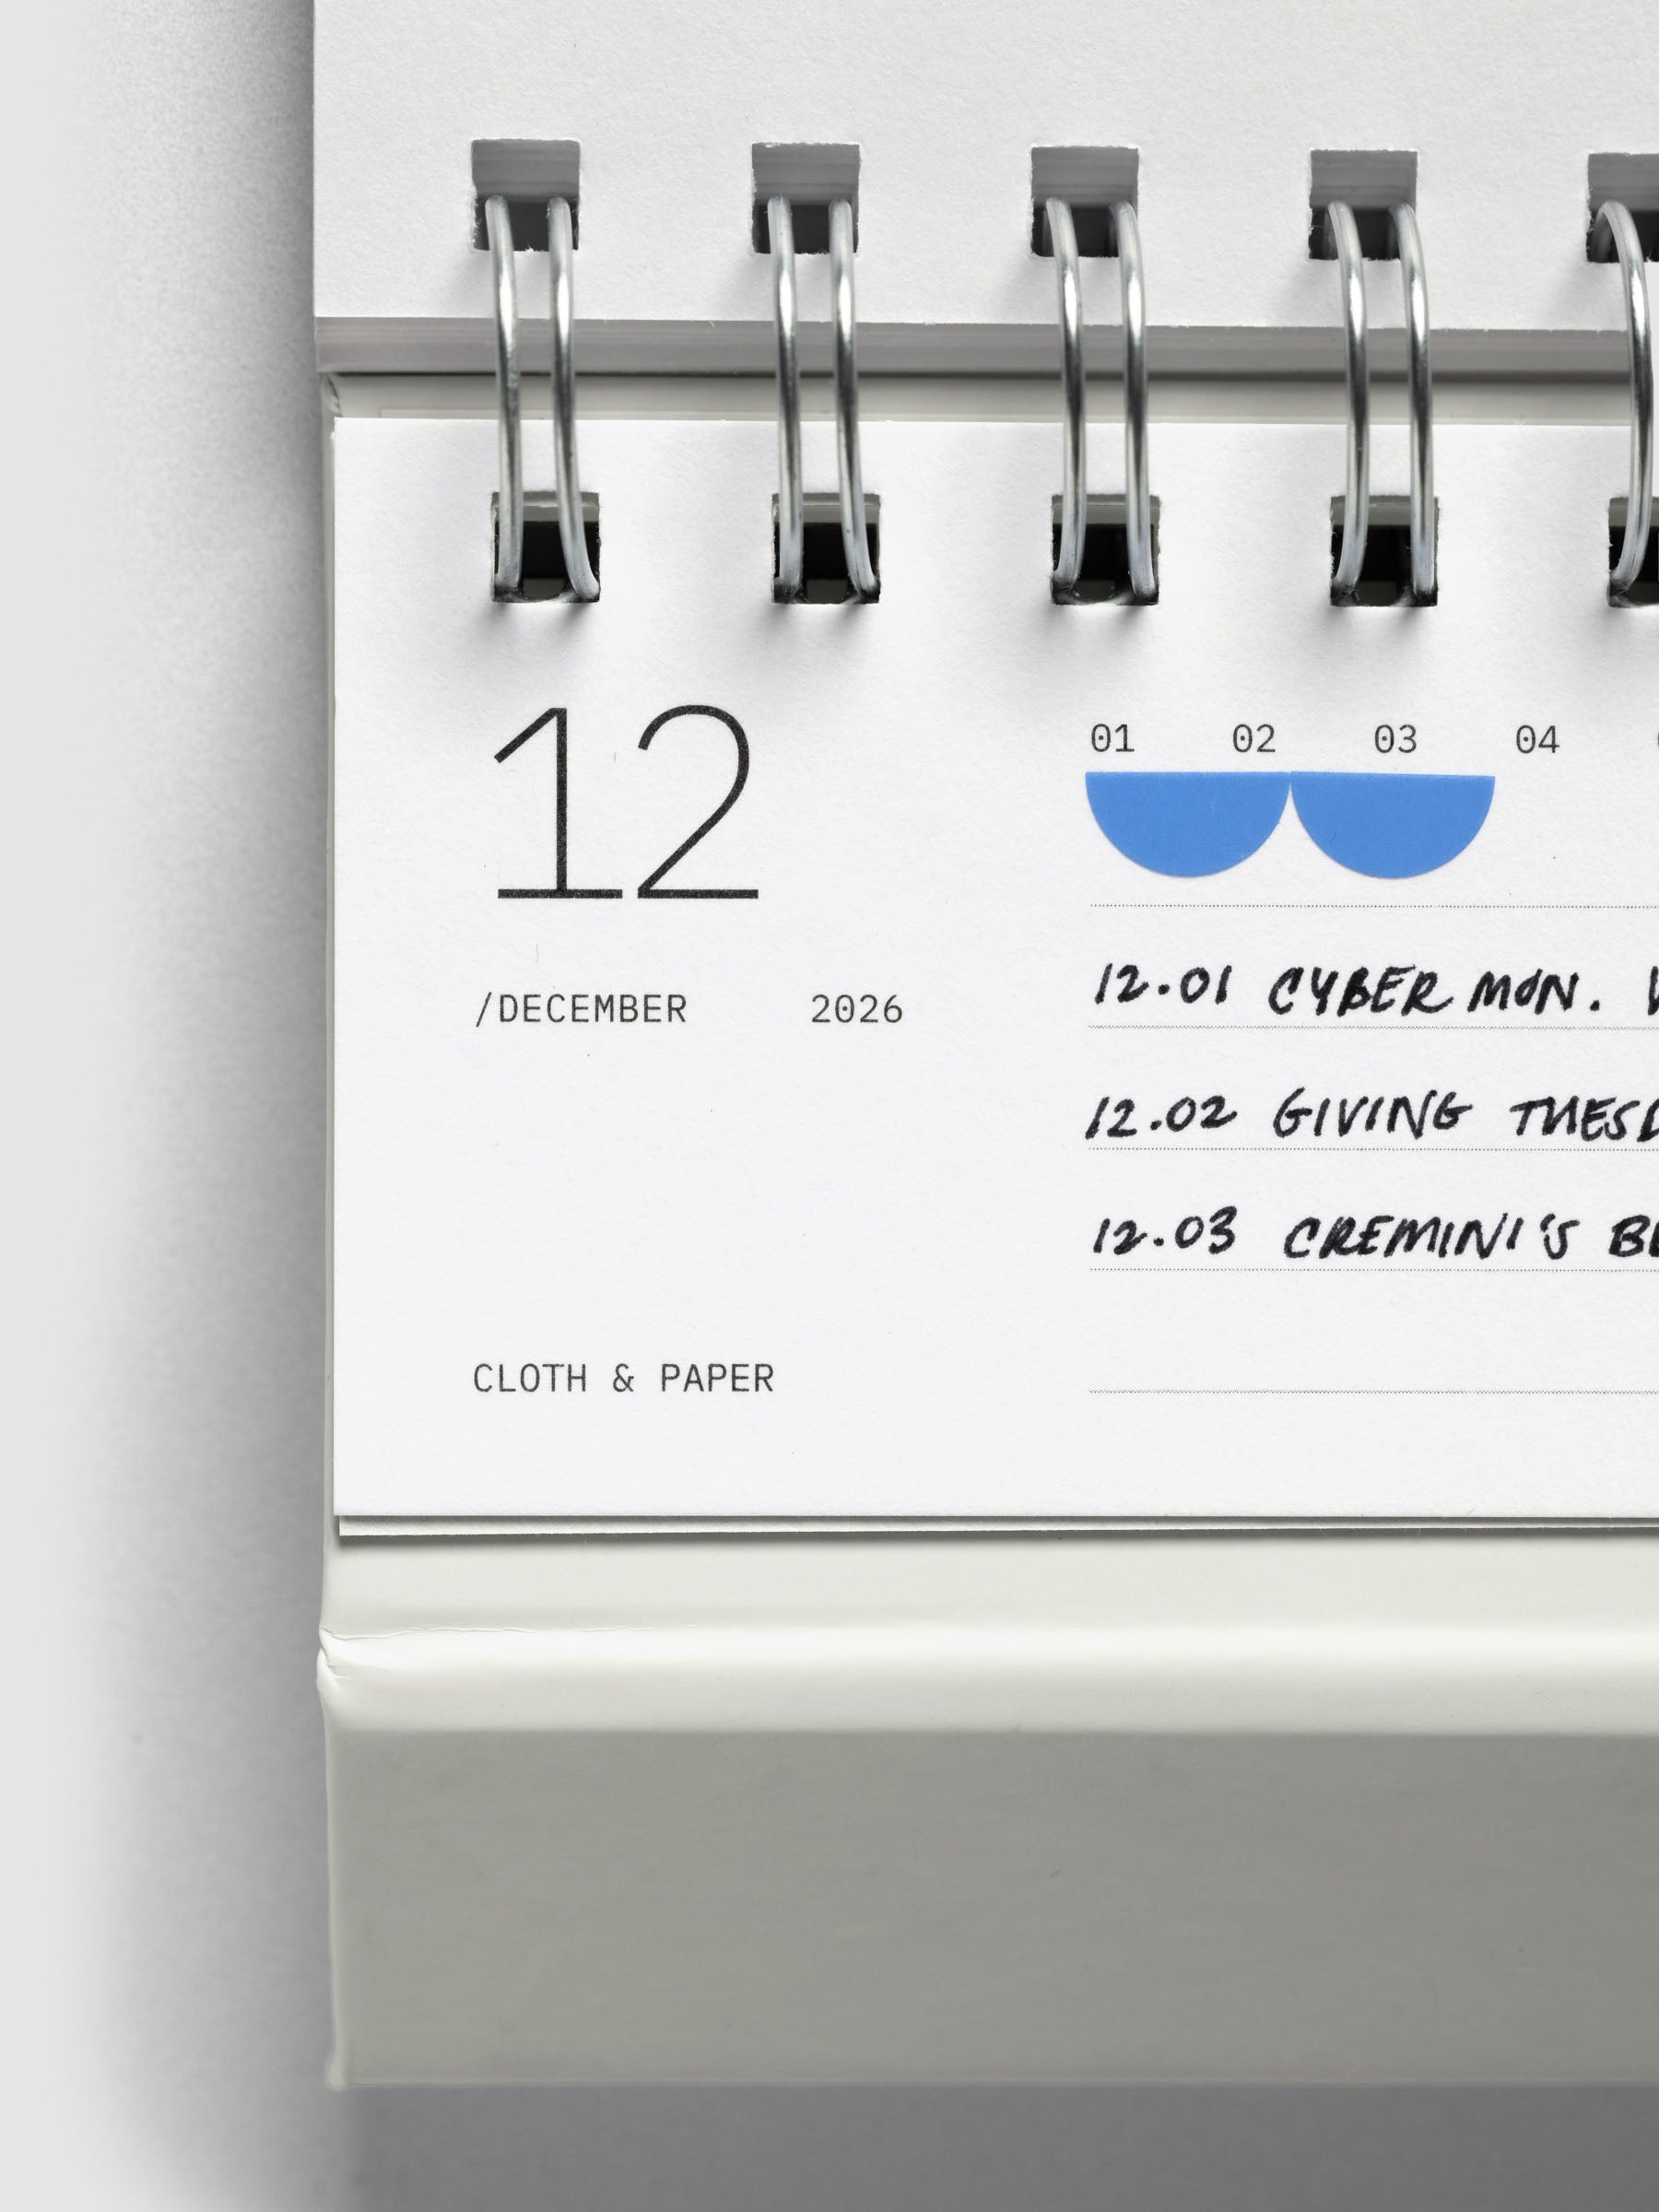 12
/DECEMBER 2026
CLOTH & PAPER
01 02 03 04
12.01 CYBER MON.
12.02 GIVING
12.03 CREMINI'S